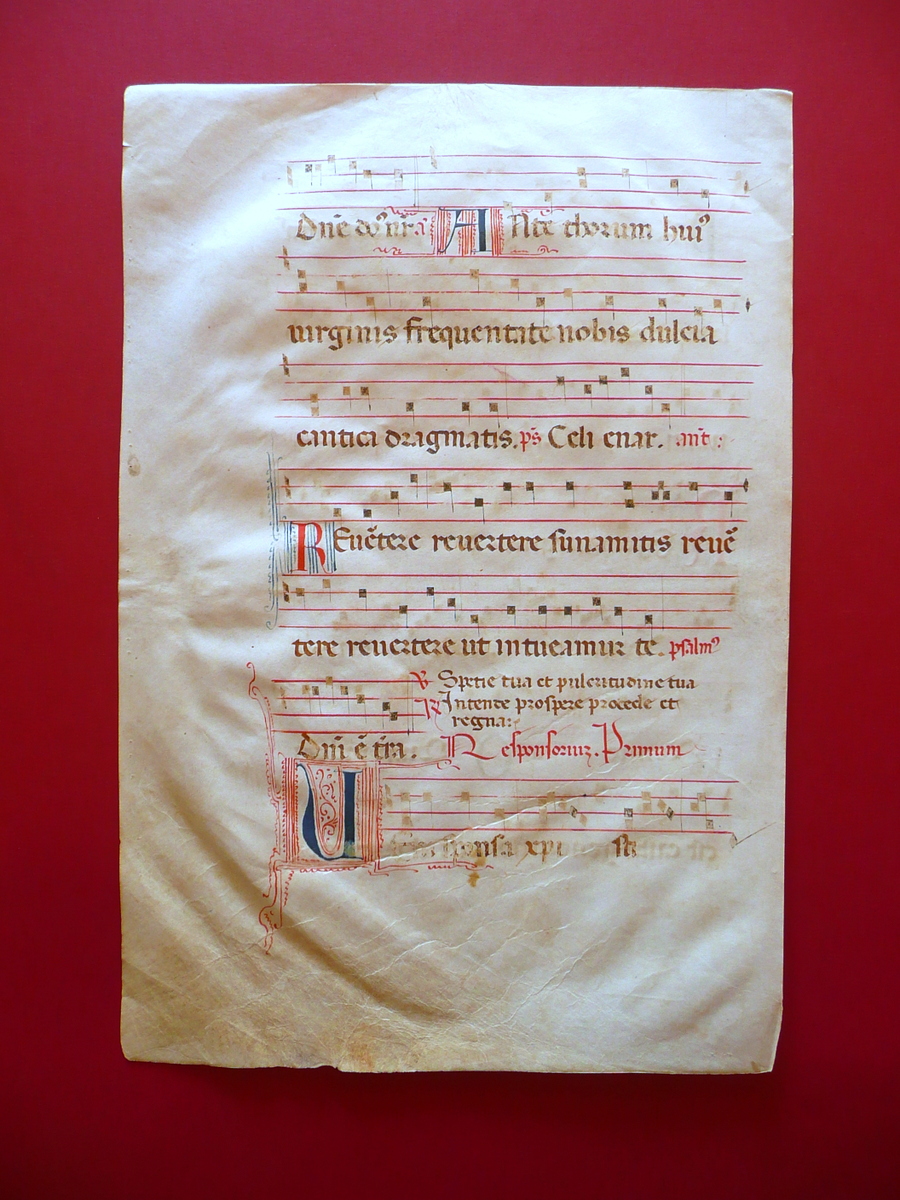 Dñe do᷒ nr̃a Ante thorum hui᷒
virginis frequentate nobis dulcia
cantica dragmatis. ps̃ Celi enar. ant̃:
REuẽtere reuertere sunamitis reuẽ
tere reuertere ut intueamur te. psalm᷒
V Spetie tua et pulcritudine tua
R Intente prospere procede et
regna:
Dñi ẽ t̃ra. Responsoriuz. Primum
U sponsa xpi